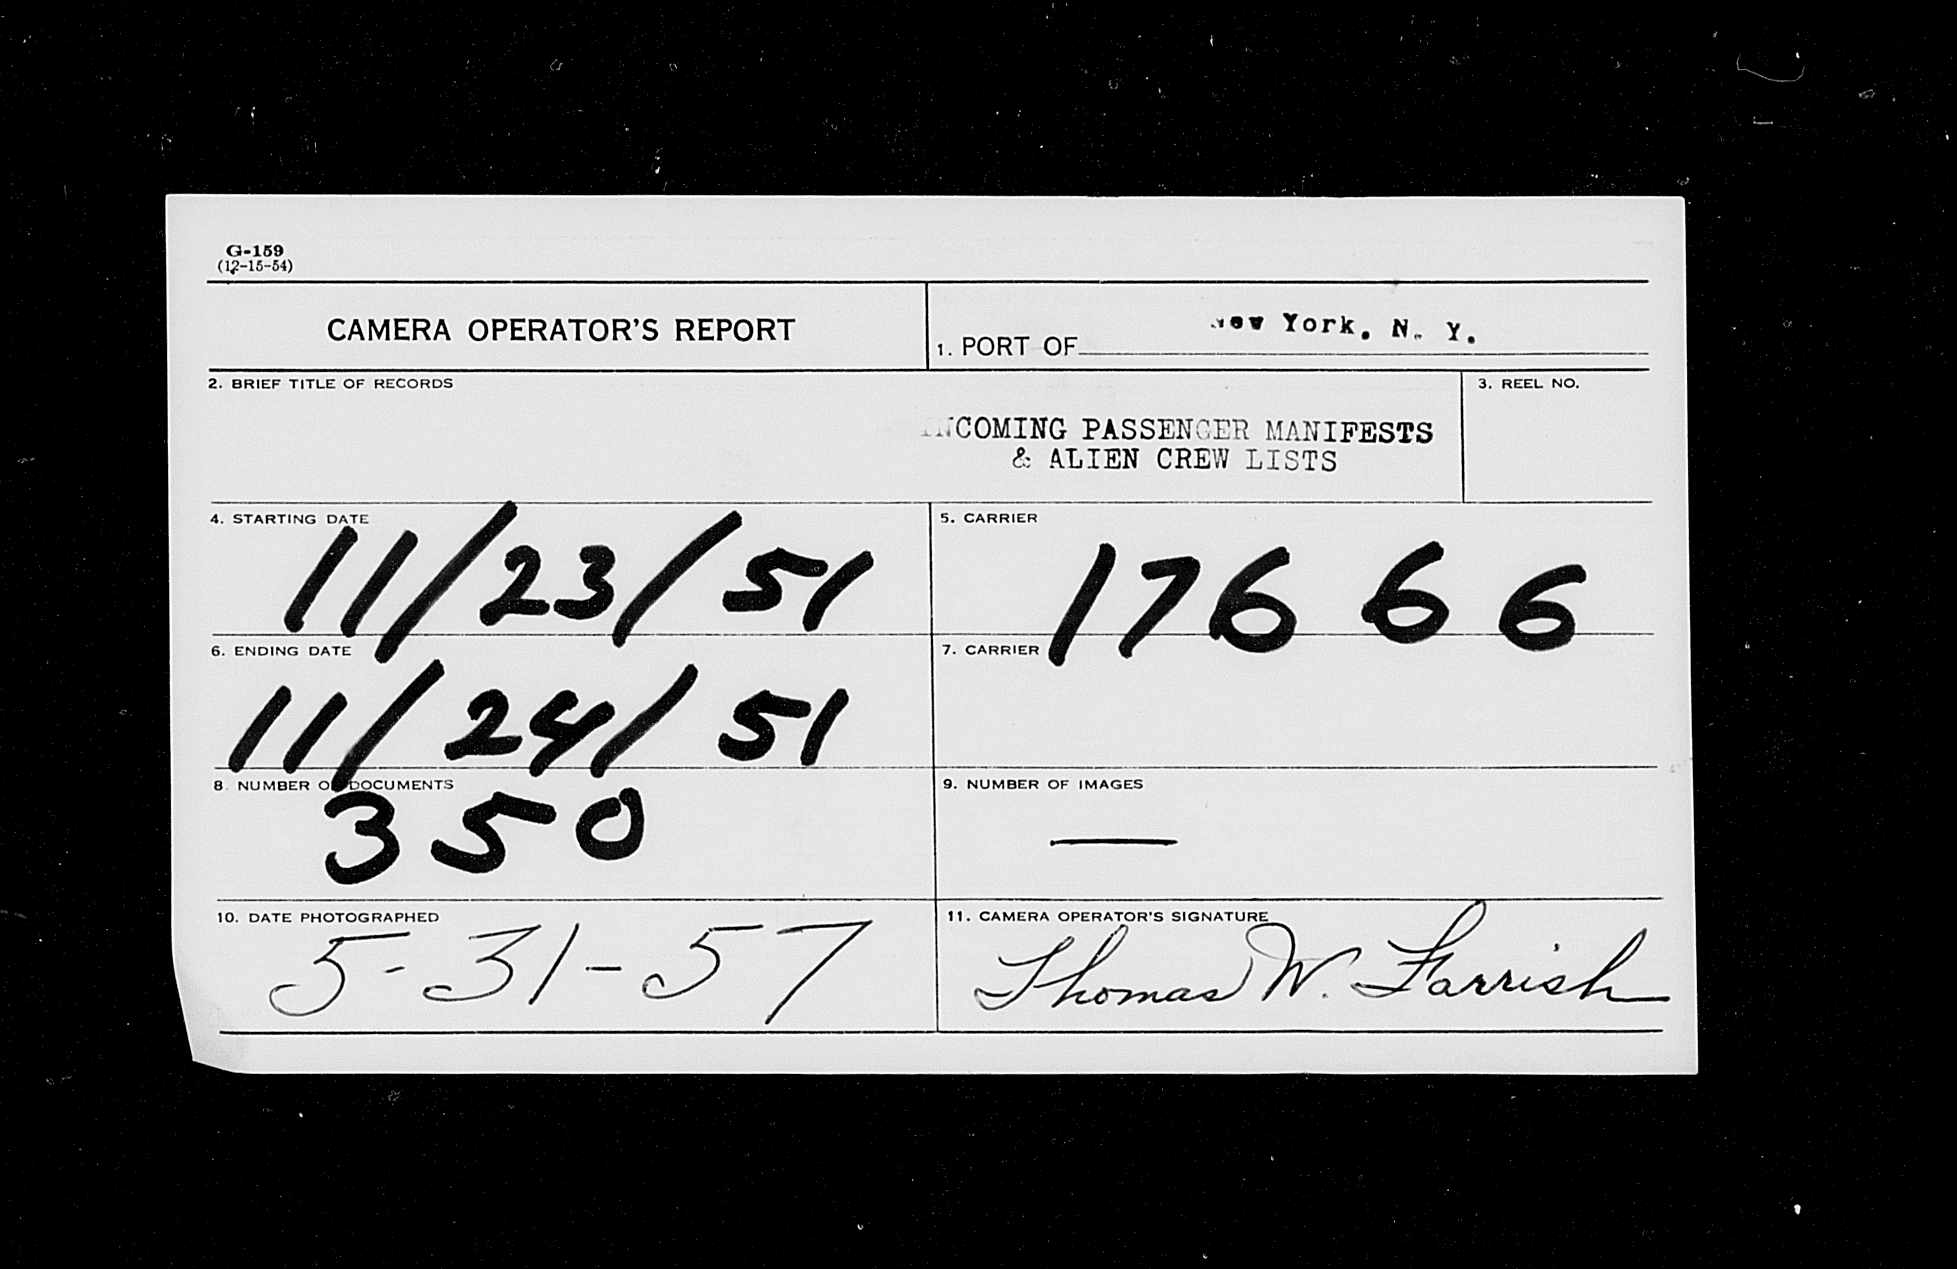 G-159
(12-15-54)
CAMERA OPERATOR'S REPORT
1. PORT OF New York, N. Y.
2. BRIEF TITLE OF RECORDS
INCOMING PASSENGER MANIFESTS
& ALIEN CREW LISTS
3. REEL NO.
4. STARTING DATE
11/23/51
5. CARRIER
17666
6. ENDING DATE
11/24/51
7. CARRIER
8. NUMBER OF DOCUMENTS
350
9. NUMBER OF IMAGES
—
10. DATE PHOTOGRAPHED
5-31-57
11. CAMERA OPERATOR'S SIGNATURE
Thomas W. Farrish